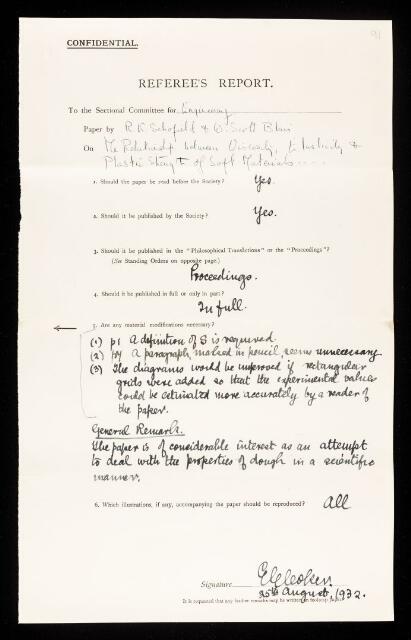 91
CONFIDENTIAL.
REFEREE'S REPORT.
To the Sectional Committee for Engineering
Paper by R. K Schofield & G. Scott Blair
On The Relationship between Viscosity, Elasticity &
Plastic Strength of Soft Materials ....
1. Should the paper be read before the Society? Yes.
2. Should it be published by the Society? Yes.
3. Should it be published in the "Philosophical Transactions" or the "Proceedings"?
(See Standing Orders on opposite page.)
Proceedings.
4. Should it be published in full or only in part?
In full.
5. Are any material modifications necessary?
(1) p1 A definition of S is required.
(2) A paragraph, marked in pencil, seems unnecessary
(3) The diagrams would be improved if rectangular
grids were added so that the experimental values
could be estimated more accurately by a reader of
the paper.
General Remarks.
The paper is of considerable interest as an attempt
to deal with the properties of dough in a scientific
manner.
6. Which illustrations, if any, accompanying the paper should be reproduced? All
Signature E G Coker
25th August, 1932.
It is requested that any further remarks may be written on foolscap paper.